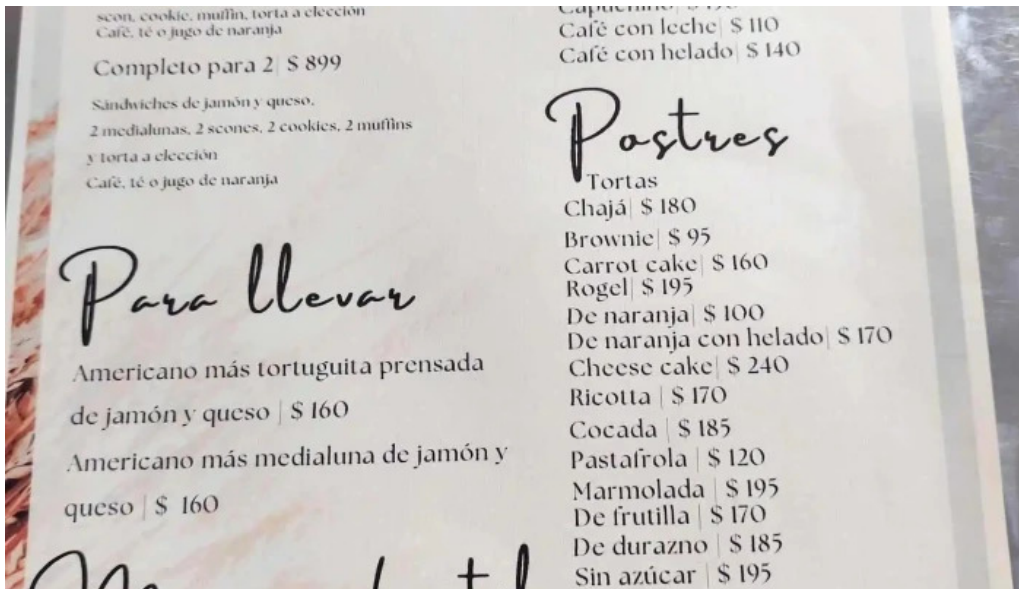 scon, cookie, muffin, torta a elección
Café, té o jugo de naranja
Completo para 2 | $ 899
Sándwiches de jamón y queso,
2 medialunas, 2 scones, 2 cookies, 2 muffins
y torta a elección
Café, té o jugo de naranja
Para llevar
Americano más tortuguita prensada
de jamón y queso | $ 160
Americano más medialuna de jamón y
queso | $ 160
Capuchino| $
Café con leche| $ 110
Café con helado| $ 140
Postres
Tortas
Chajá| $ 180
Brownie| $ 95
Carrot cake| $ 160
Rogel| $ 195
De naranja| $ 100
De naranja con helado| $ 170
Cheese cake| $ 240
Ricotta | $ 170
Cocada | $ 185
Pastafrola | $ 120
Marmolada | $ 195
De frutilla | $ 170
De durazno | $ 185
Sin azúcar | $ 195